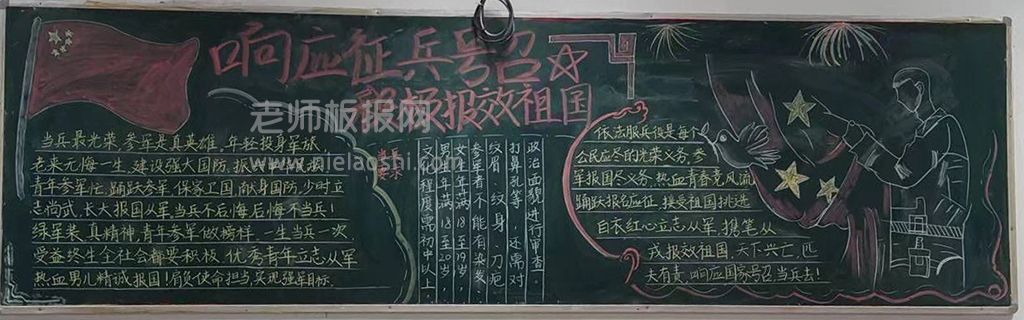 响应征兵号召
积极报效祖国
老师板报网
www.nielaoshi.com
当兵最光荣,参军是真英雄,年轻投身军旅,
老来无悔一生,建设强大国防,振
青年参军忙,踊跃参军,保家卫国,献身国防,少时立
志尚武,长大报国从军,当兵不后悔,后悔不当兵!
绿军装,真精神,青年参军做榜样,一生当兵一次,
受益终生,全社会都要积极,优秀青年立志从军
热血男儿精诚报国!肩负使命担当,实现强军目标.
政治面貌进行审查,
打鼻孔等,还需对
纹眉、纹身、刀疤
参军者不能有染发
女生年满18至19岁,
男生年满18至20岁,
文化程度需初中以上,
依法服兵役是每个
公民应尽的光荣义务,参
军报国尽义务,热血青春竞风流
踊跃报名应征,接受祖国挑选
白衣红心立志从军,携笔从
戎报效祖国,天下兴亡,匹
夫有责,响应国家号召,当兵去!